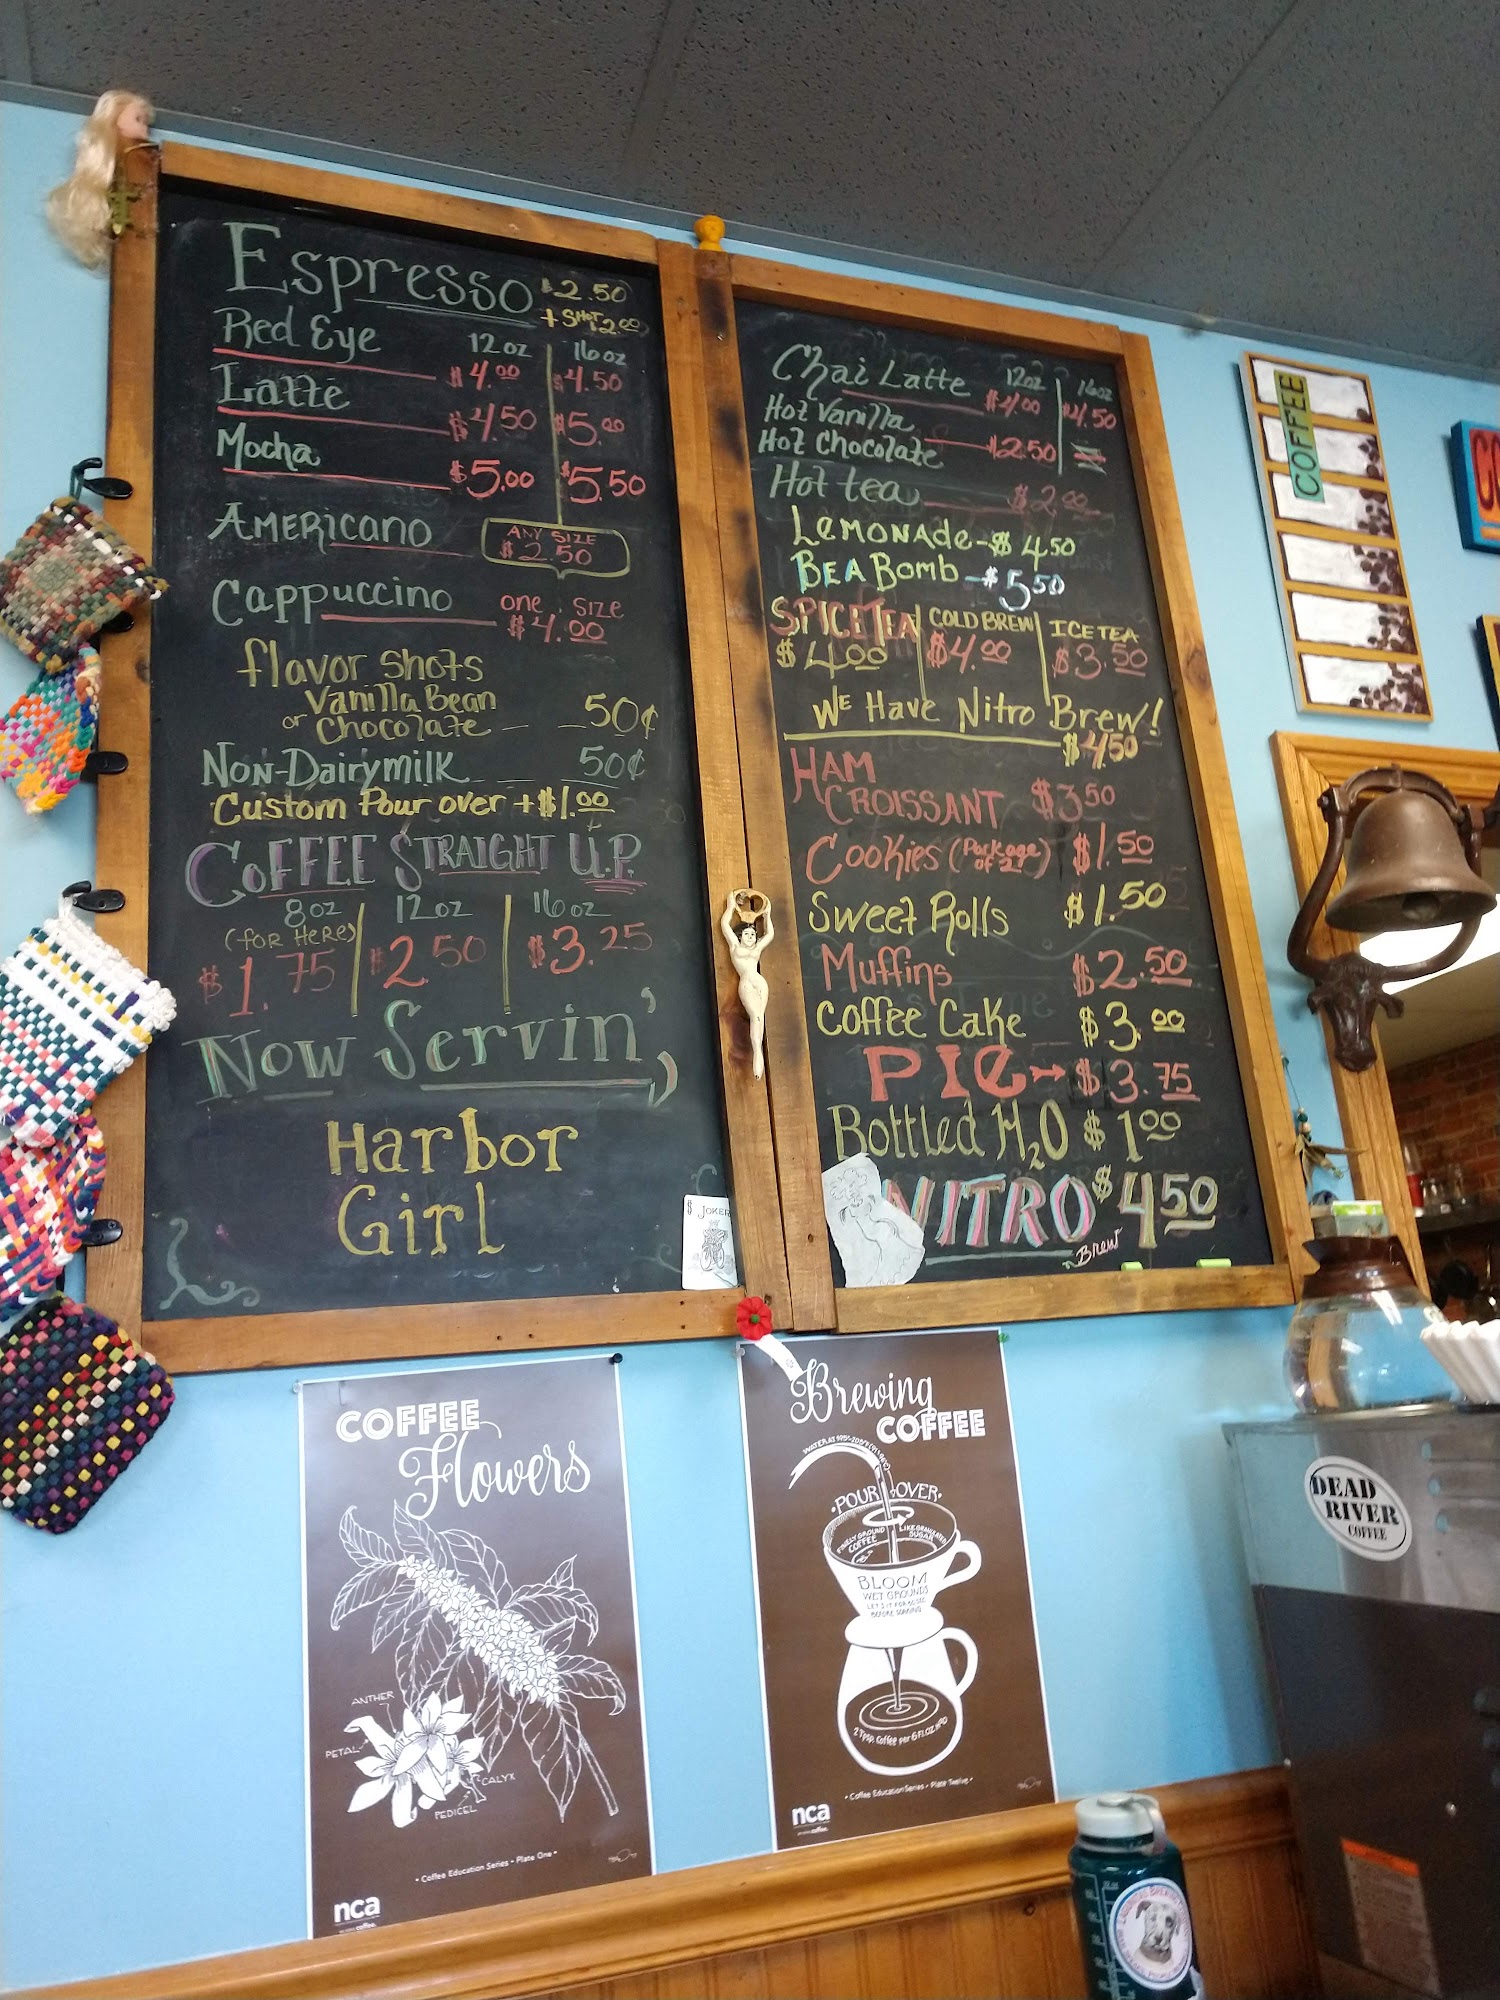 Espresso $2.50
+ SHOT $2.00
Red Eye 12oz 16oz
$4.00 $4.50
Latte
$4.50 $5.00
Mocha
$5.00 $5.50
AMERICANO ANY SIZE
$2.50
Cappuccino one size
$4.00
flavor shots
Vanilla Bean
or Chocolate 50¢
Non-Dairy milk 50¢
Custom Pour over + $1.00
COFFEE STRAIGHT U.P.
8oz 12oz 16oz
(for Here)
$1.75 $2.50 $3.25
Now Servin'
Harbor
Girl
JOKER
Chai Latte 12oz 16oz
$4.00 $4.50
Hot Vanilla
Hot Chocolate $2.50
Hot tea $2.00
LEMONADE - $4.50
BEA BOMB - $5.50
SPICE TEA COLD BREW ICE TEA
$4.00 $4.00 $3.50
WE Have Nitro Brew!
$4.50
HAM
CROISSANT $3.50
Cookies (Package of 2) $1.50
Sweet Rolls $1.50
Muffins $2.50
Coffee Cake $3.00
PIe $3.75
Bottled H2O $1.00
NITRO $4.50
Brew
COFFEE
DEAD
RIVER
COFFEE
COFFEE
Flowers
ANTHER
PETAL
CALYX
PEDICEL
• Coffee Education Series • Plate One •
nca
Brewing
COFFEE
• POUR OVER •
FINELY GROUND COFFEE
LIKE GRANULATED SUGAR
BLOOM
WET GROUNDS
2 Tbsp. Coffee per 6 FL OZ H2O
• Coffee Education Series • Plate Twelve •
nca